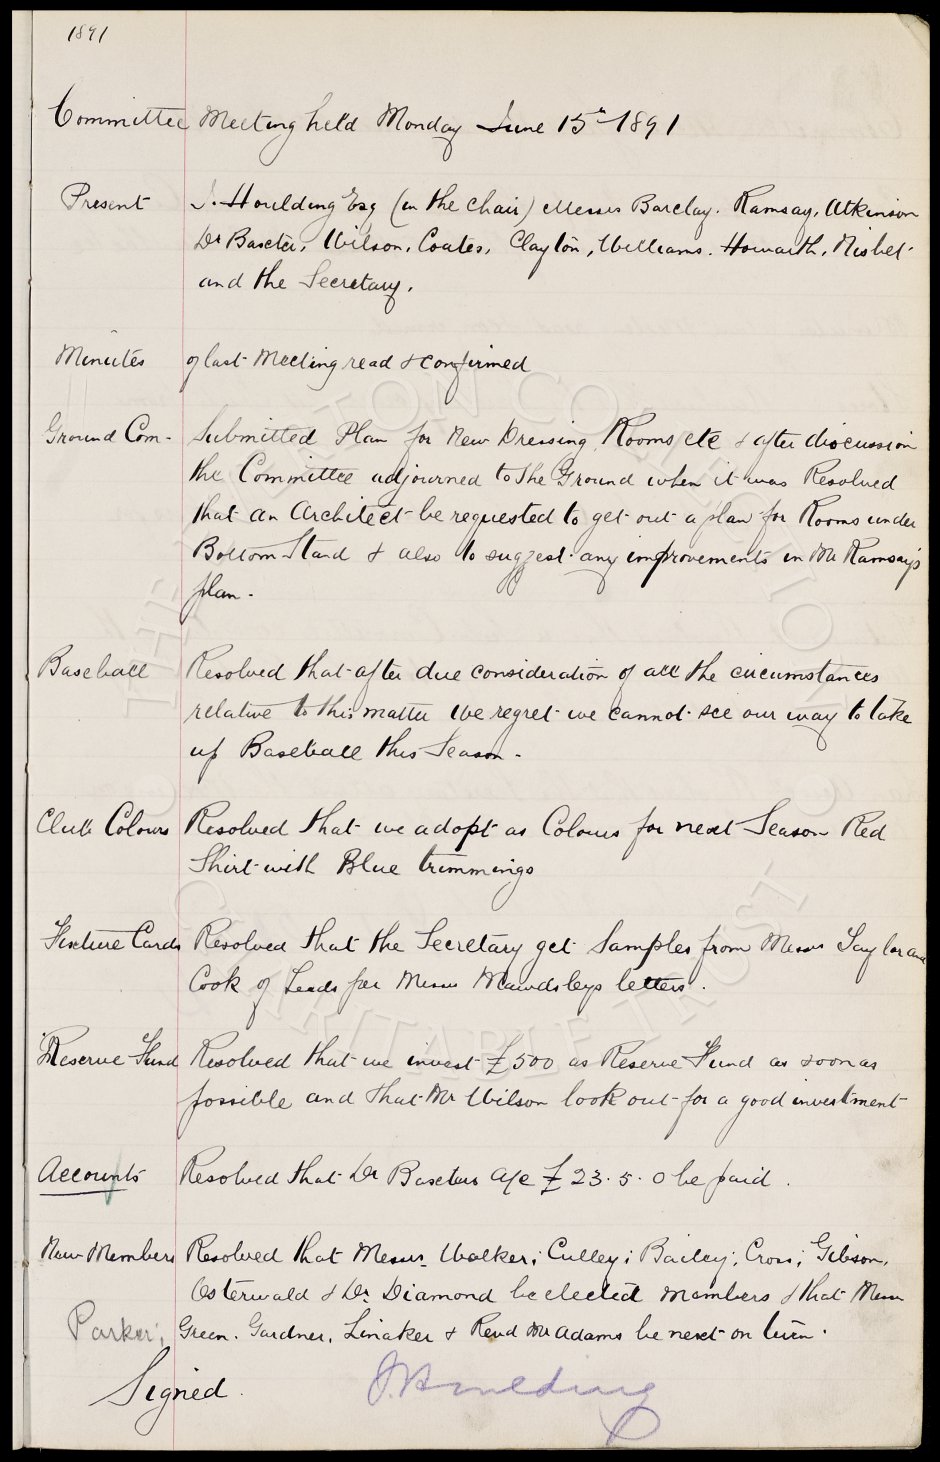 1891
Committee Meeting held Monday June 15th 1891
Present J. Houlding Esq (in the chair) Messrs Barclay. Ramsay, Atkinson
Dr Baxter, Wilson, Coates, Clayton, Williams. Howarth, Nisbet
and the Secretary.
Minutes of last Meeting read & confirmed
Ground Com- Submitted Plan for New Dressing Rooms etc & after discussion
the Committee adjourned to the Ground when it was Resolved
that an Architect be requested to get out a plan for Rooms under
Bottom Stand & also to suggest any improvements in Mr Ramsay's
plan.
Baseball Resolved that after due consideration of all the circumstances
relative to this matter we regret we cannot see our way to take
up Baseball this Season.
Club Colours Resolved that we adopt as Colours for next Season Red
Shirt with Blue trimmings
Fixture Cards Resolved that the Secretary get Samples from Messrs Taylor and
Cook of Leeds per Messrs Mawdsleys letters.
Reserve Fund Resolved that we invest £500 as Reserve Fund as soon as
possible and that Mr Wilson look out for a good investment
Accounts Resolved that Dr Baxters a/c £23.5.0 be paid.
New Members Resolved that Messrs. Walker; Culley; Bailey; Cross; Gibson,
Osterwald & Dr. Diamond be elected members & that Messrs
Parker; Green. Gardner, Linaker & Revd Mr Adams be next on turn.
Signed. J. Houlding
THE EVERTON COLLECTION CHARITABLE TRUST